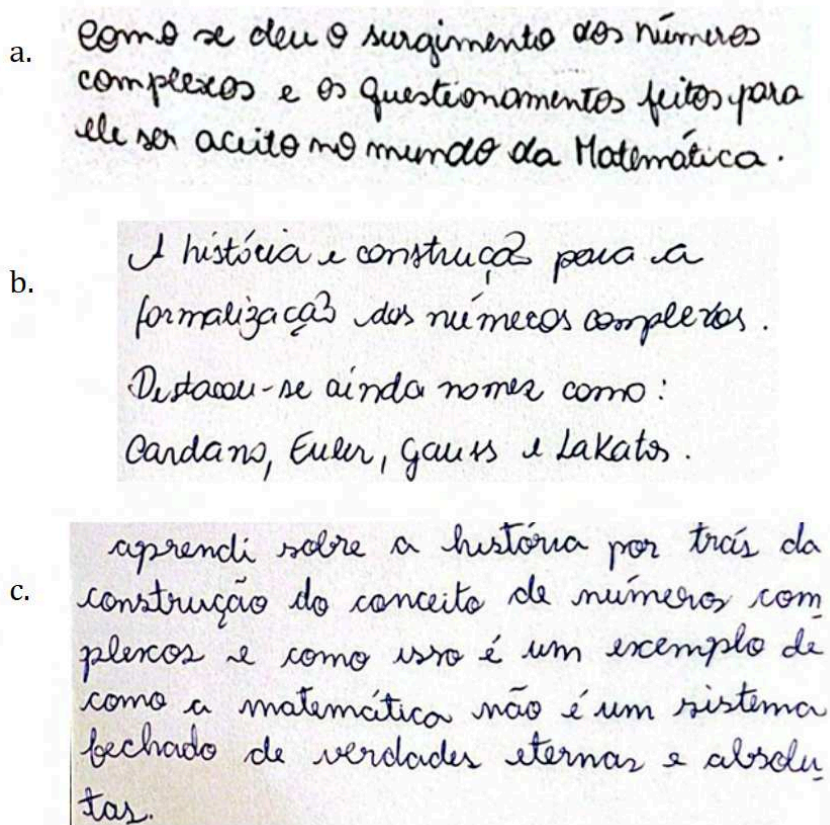 a.
Como se deu o surgimento dos números
complexos e os questionamentos feitos para
ele ser aceito no mundo da Matemática.
b.
A história e construção para a
formalização dos números complexos.
Destacou-se ainda nomes como:
Cardano, Euler, Gauss e Lakatos.
c.
aprendi sobre a história por trás da
construção do conceito de números com
plexos e como isso é um exemplo de
como a matemática não é um sistema
fechado de verdades eternas e absolu
tas.